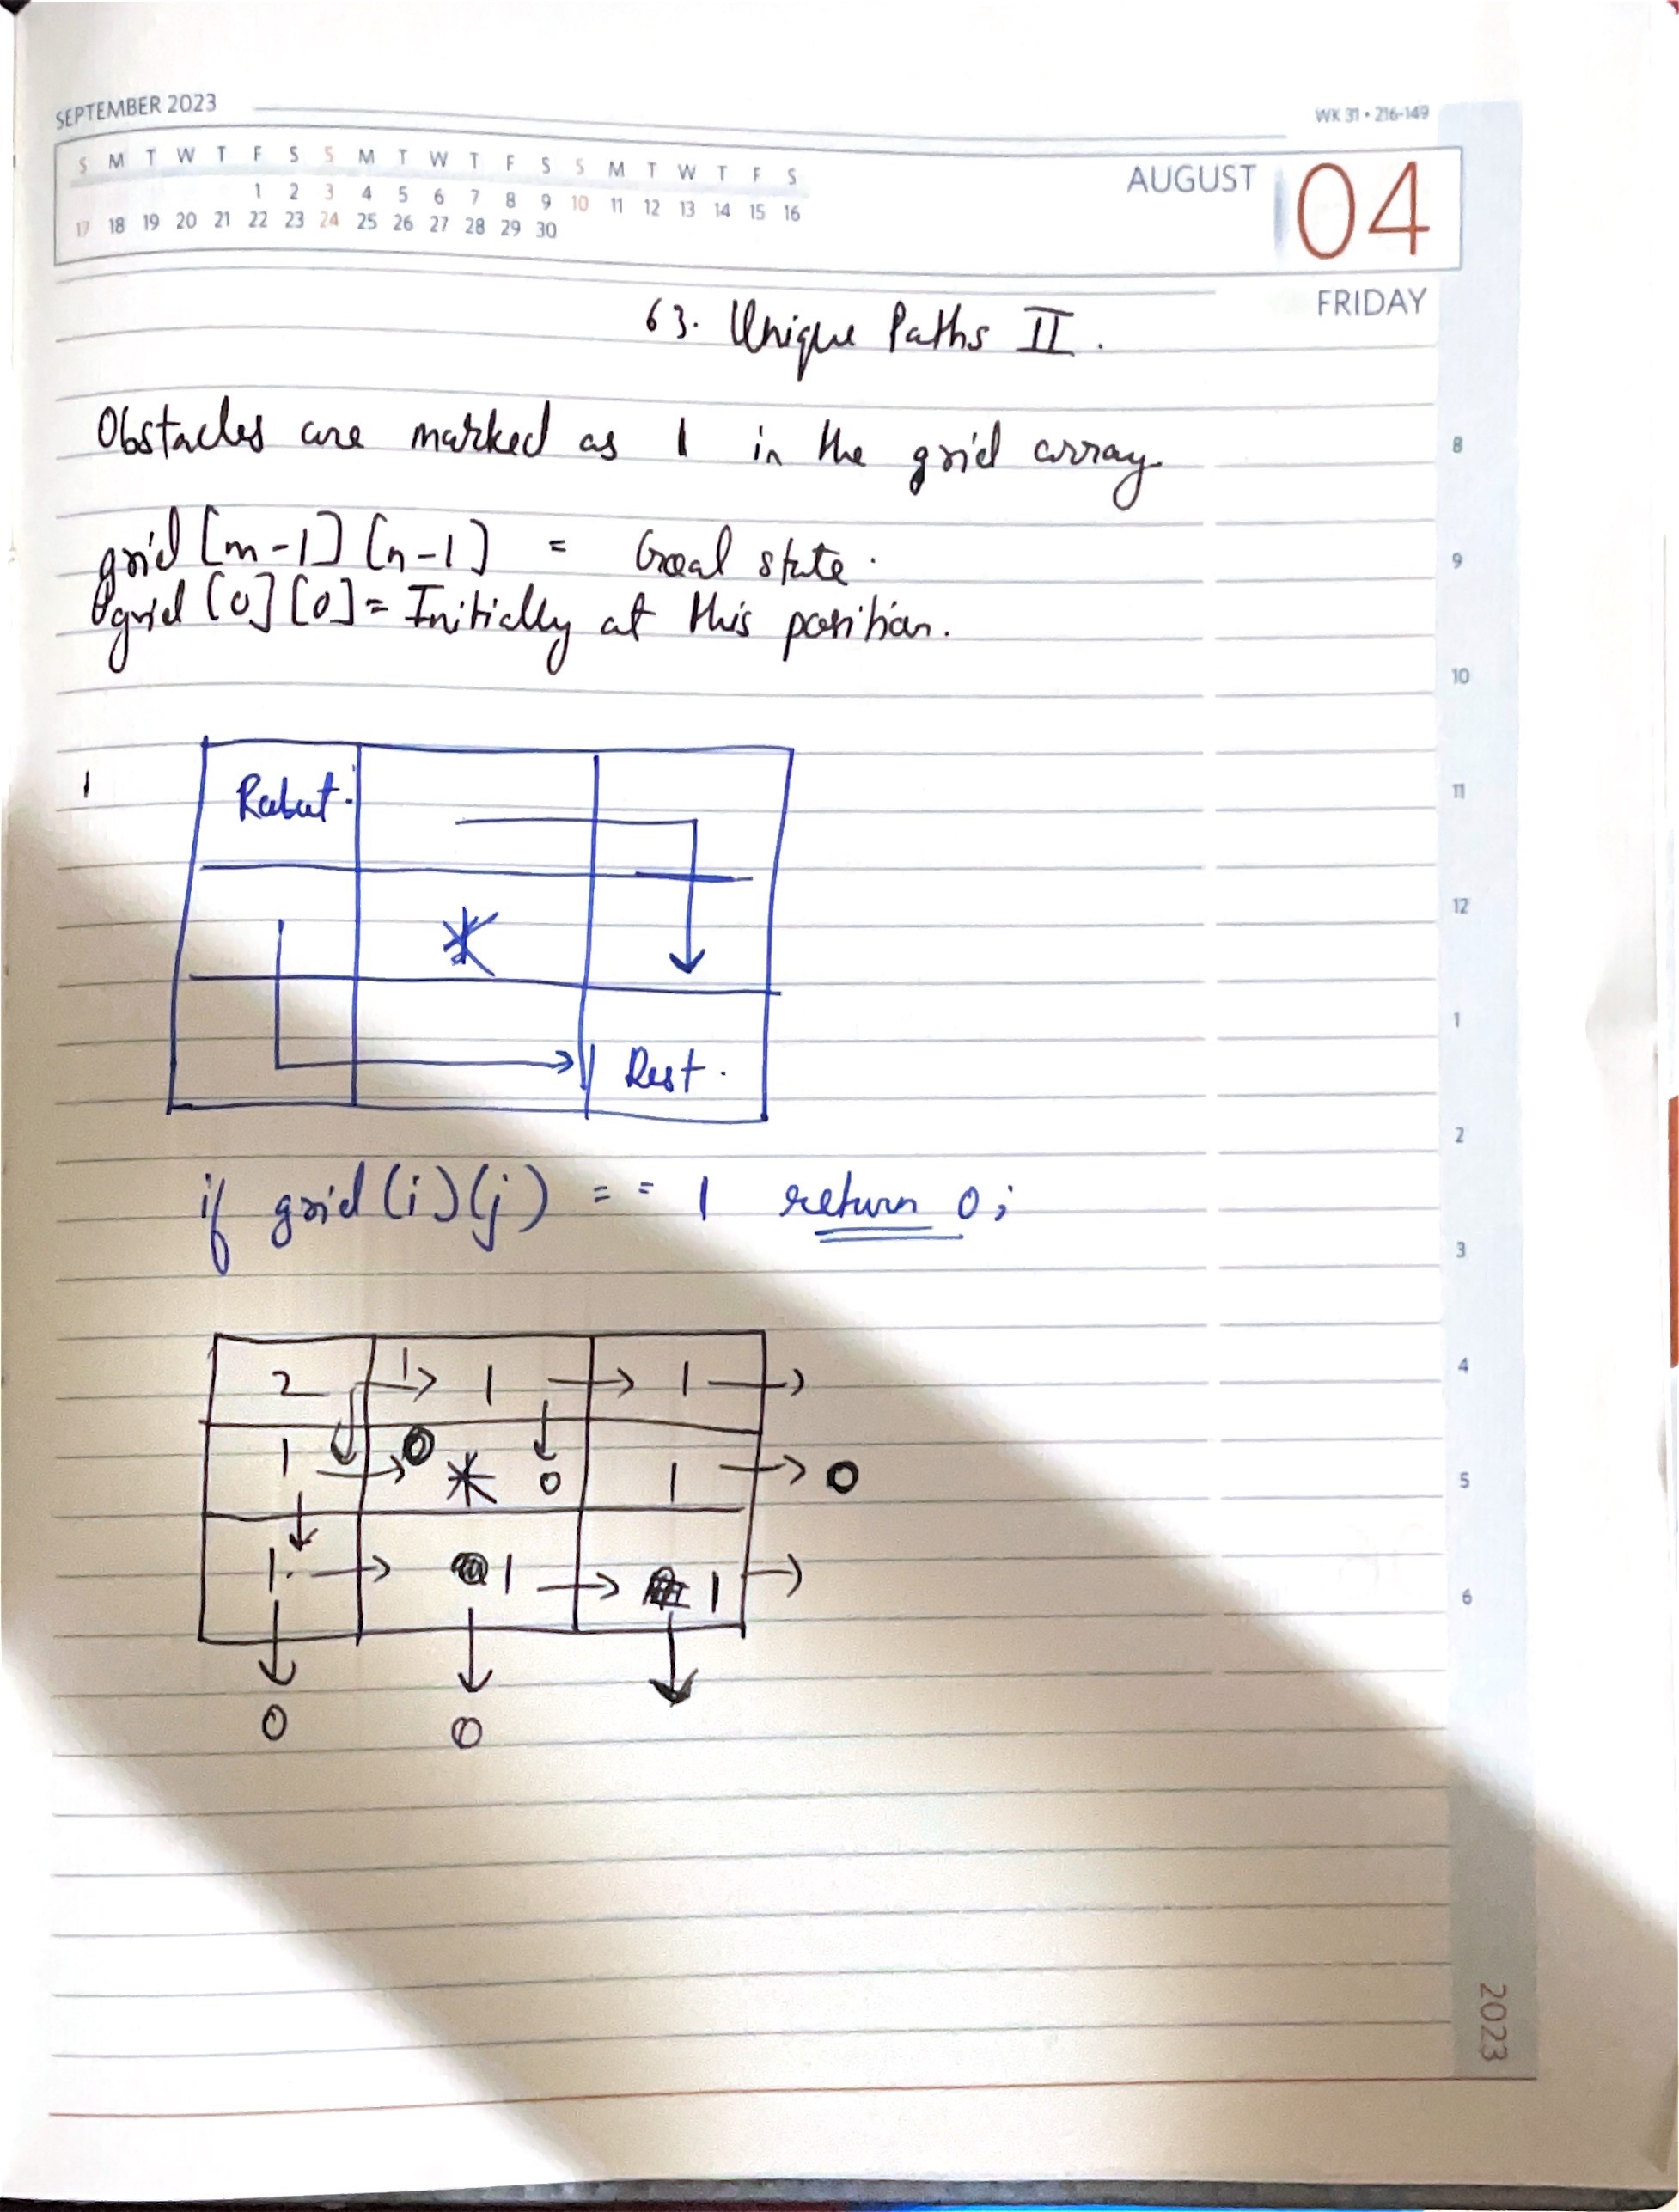 SEPTEMBER 2023
WK 31 • 216-149
S M T W T F S S M T W T F S S M T W T F S
1 2 3 4 5 6 7 8 9 10 11 12 13 14 15 16
17 18 19 20 21 22 23 24 25 26 27 28 29 30
AUGUST 04
FRIDAY
63. Unique Paths II.
Obstacles are marked as 1 in the grid array.
8
grid [m-1] [n-1] = Goal state.
9
grid [0] [0] = Initially at this position.
10
1
Robot.
11
12
1
Dest.
2
if grid(i)(j) == 1 return 0;
3
2 1 1 1
4
1 0 0 1 0
5
1. 1 1
6
0 0
2023